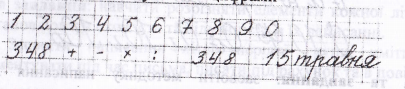 1 2 3 4 5 6 7 8 9 0
348 + - × : 348 15 травня